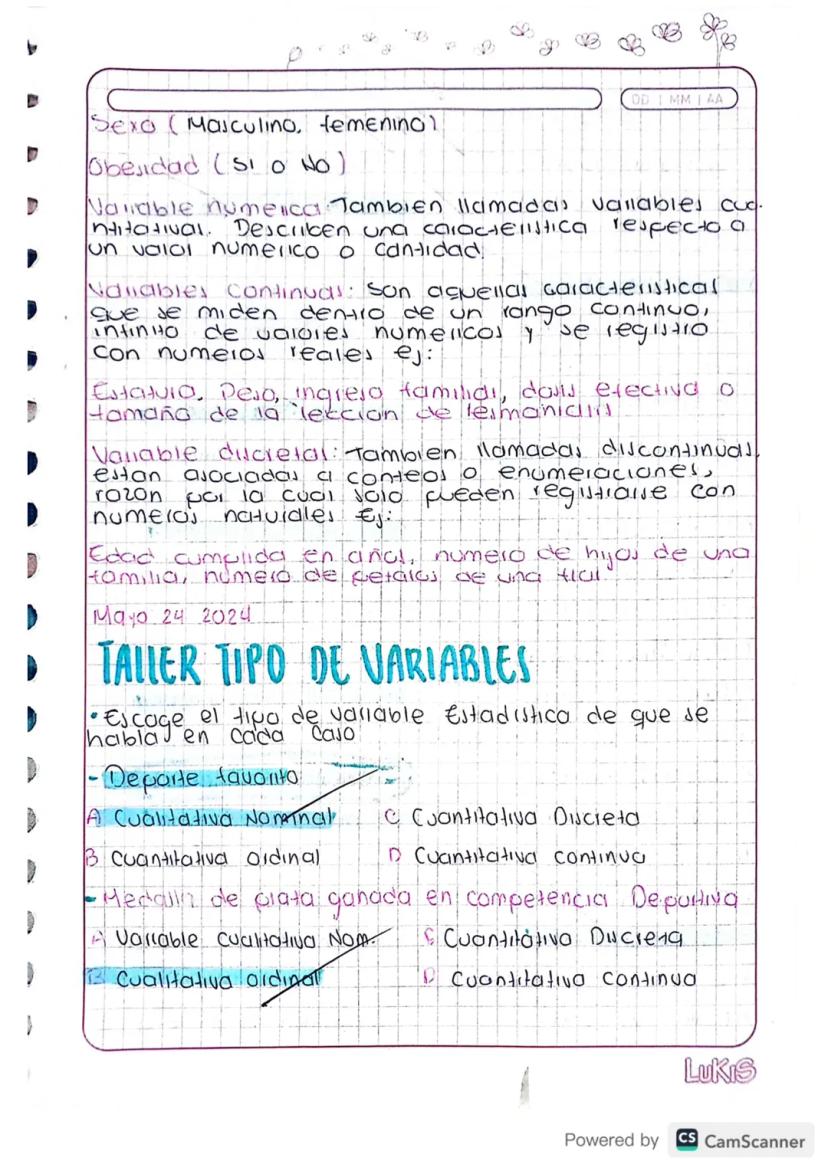 DD | MM | AA
Sexo (Masculino, femenino)
Obesidad (SI o NO)
Variable numerica: Tambien llamadas variables cua-
ntitativas. Describen una caracteristica respecto a
un valor numerico o cantidad.
Variables continuas: Son aquellas caracteristicas
que se miden dentro de un rango continuo,
infinito de valores numericos y se registro
con numeros reales ej:
Estatura, Peso, ingreso familiar, dosis efectiva o
tamaño de la leccion de leimaniasis
Variable discretas: Tambien llamadas discontinuas,
estan asociadas a conteos o enumeraciones,
razon por la cual solo pueden registrarse con
numeros naturales Ej:
Edad cumplida en años, numero de hijos de una
familia, numero de petalos de una flor.
Mayo 24 2024
TALLER TIPO DE VARIABLES
• Escoge el tipo de variable Estadistica de que se
habla en cada caso
- Deporte favorito
A Cualitativa Nominal C Cuantitativa Discreta
B Cuantitativa ordinal D Cuantitativa continua
- Medalla de plata ganada en competencia Deportiva
A Variable Cualitativa Nom. C Cuantitativa Discreta
B Cualitativa ordinal D Cuantitativa continua
LUKIS
Powered by CS CamScanner